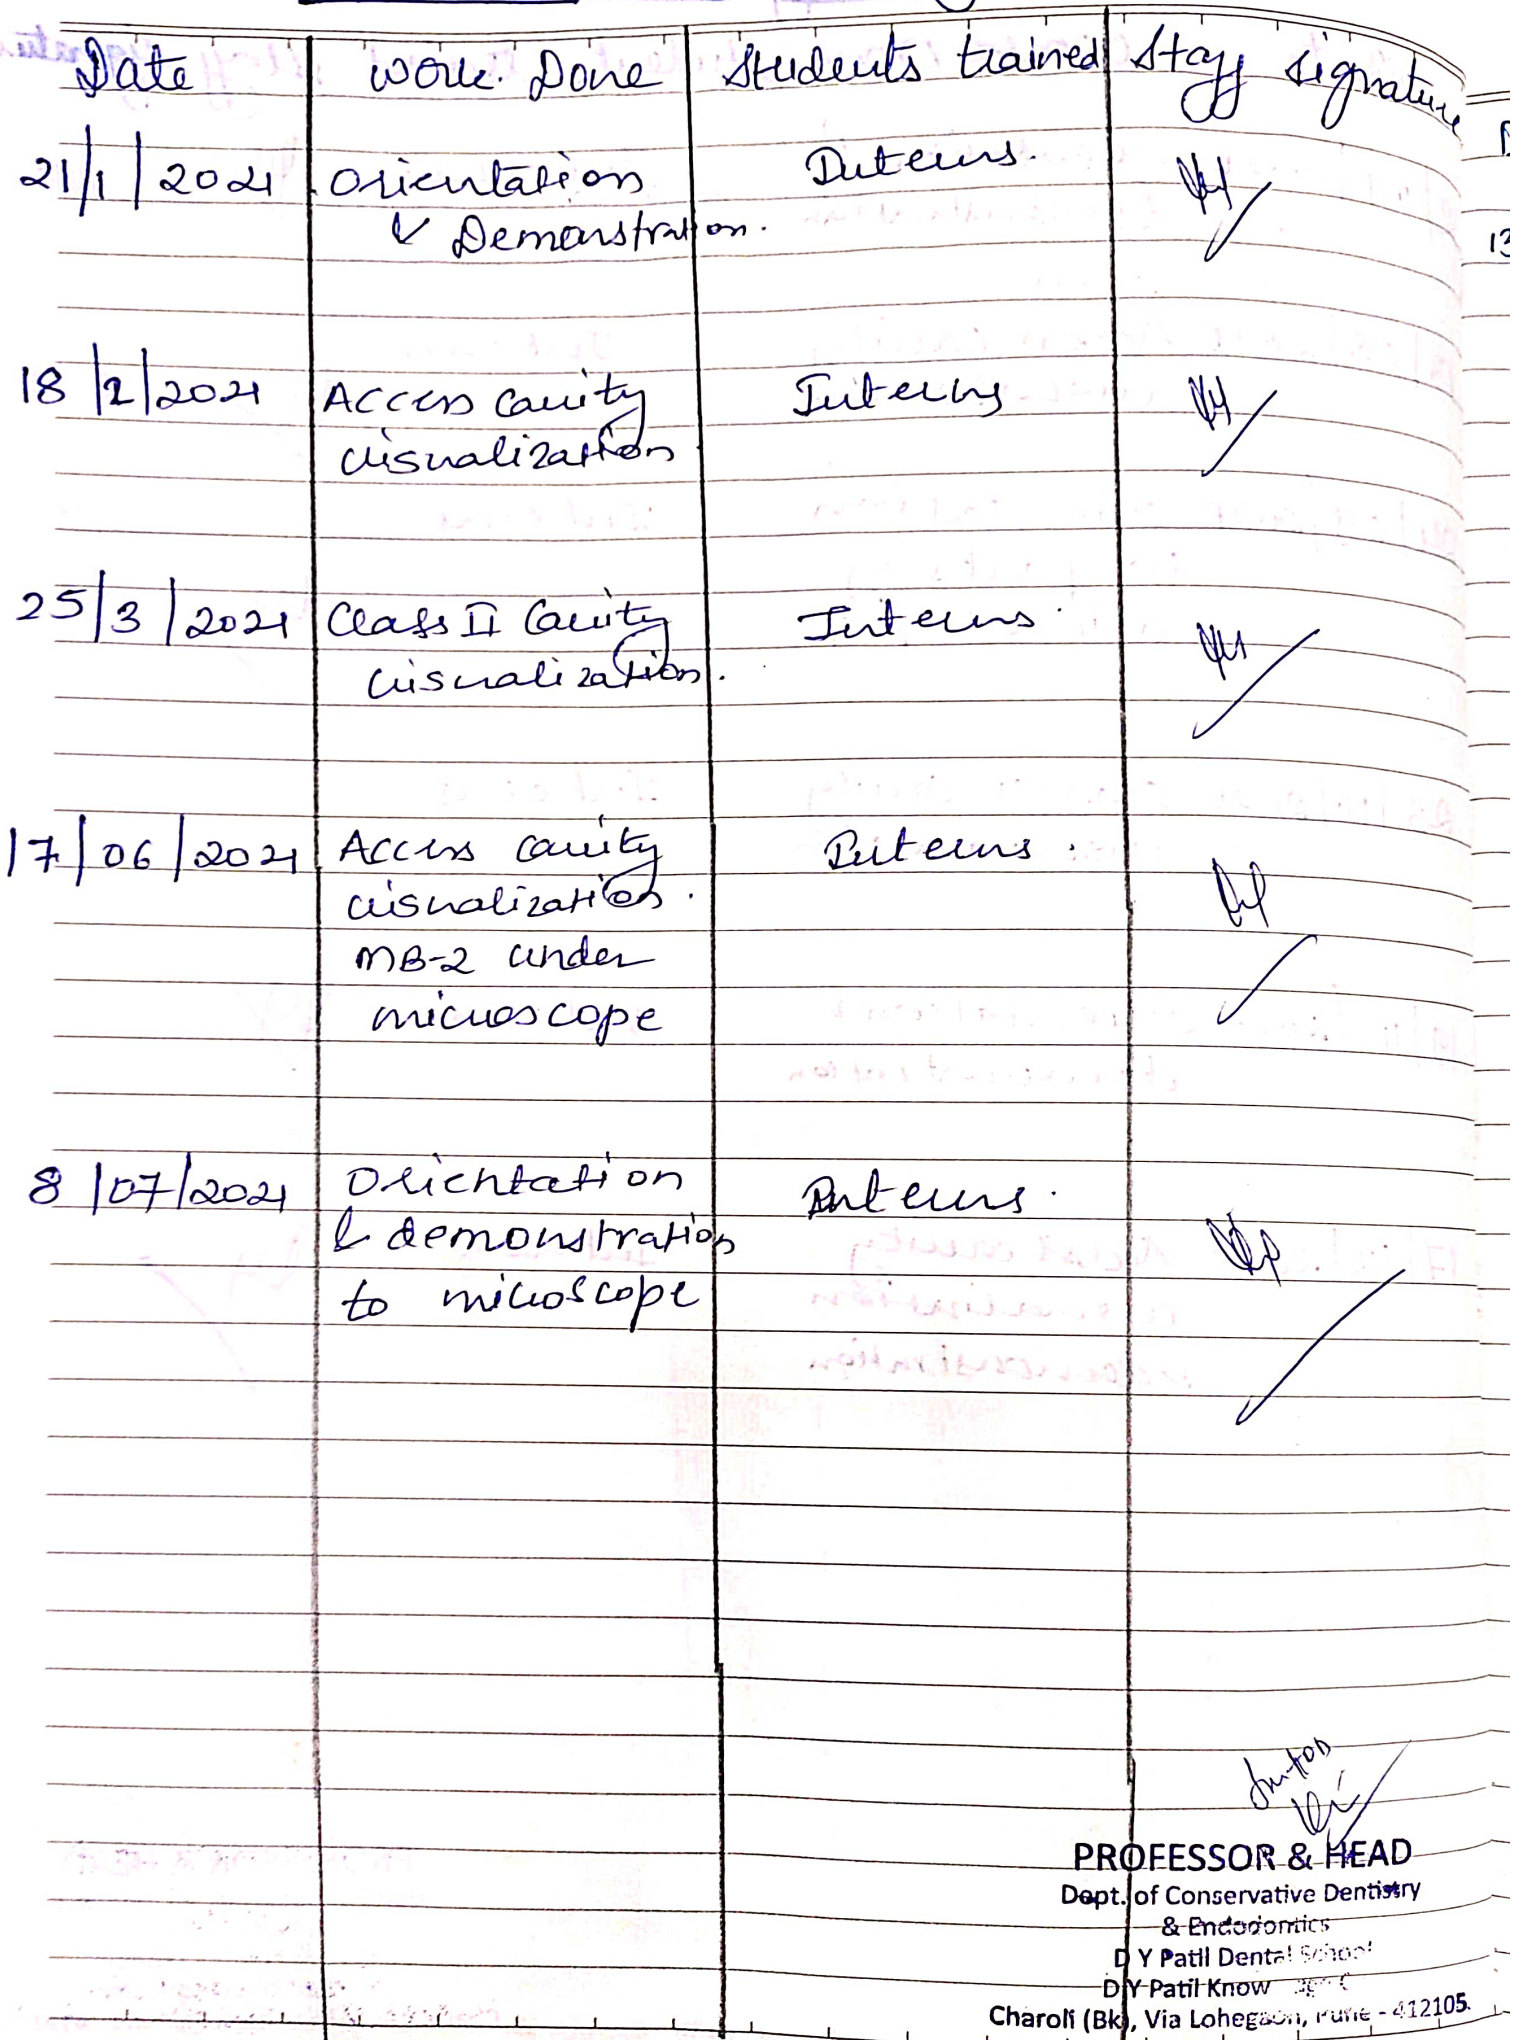 Date Work Done Students trained Staff signature
21/1/2021 Orientation Interns.
& Demonstration.
18/2/2021 Access cavity Interns
visualization
25/3/2021 Class II Cavity Interns.
visualization.
17/06/2021 Access cavity Interns.
visualization.
MB-2 under
microscope
8/07/2021 Orientation Interns.
& demonstration
to microscope
PROFESSOR & HEAD
Dept. of Conservative Dentistry
& Endodontics
D Y Patil Dental School
D Y Patil Know
Charoli (Bk), Via Lohegaon, Pune - 412105.
13